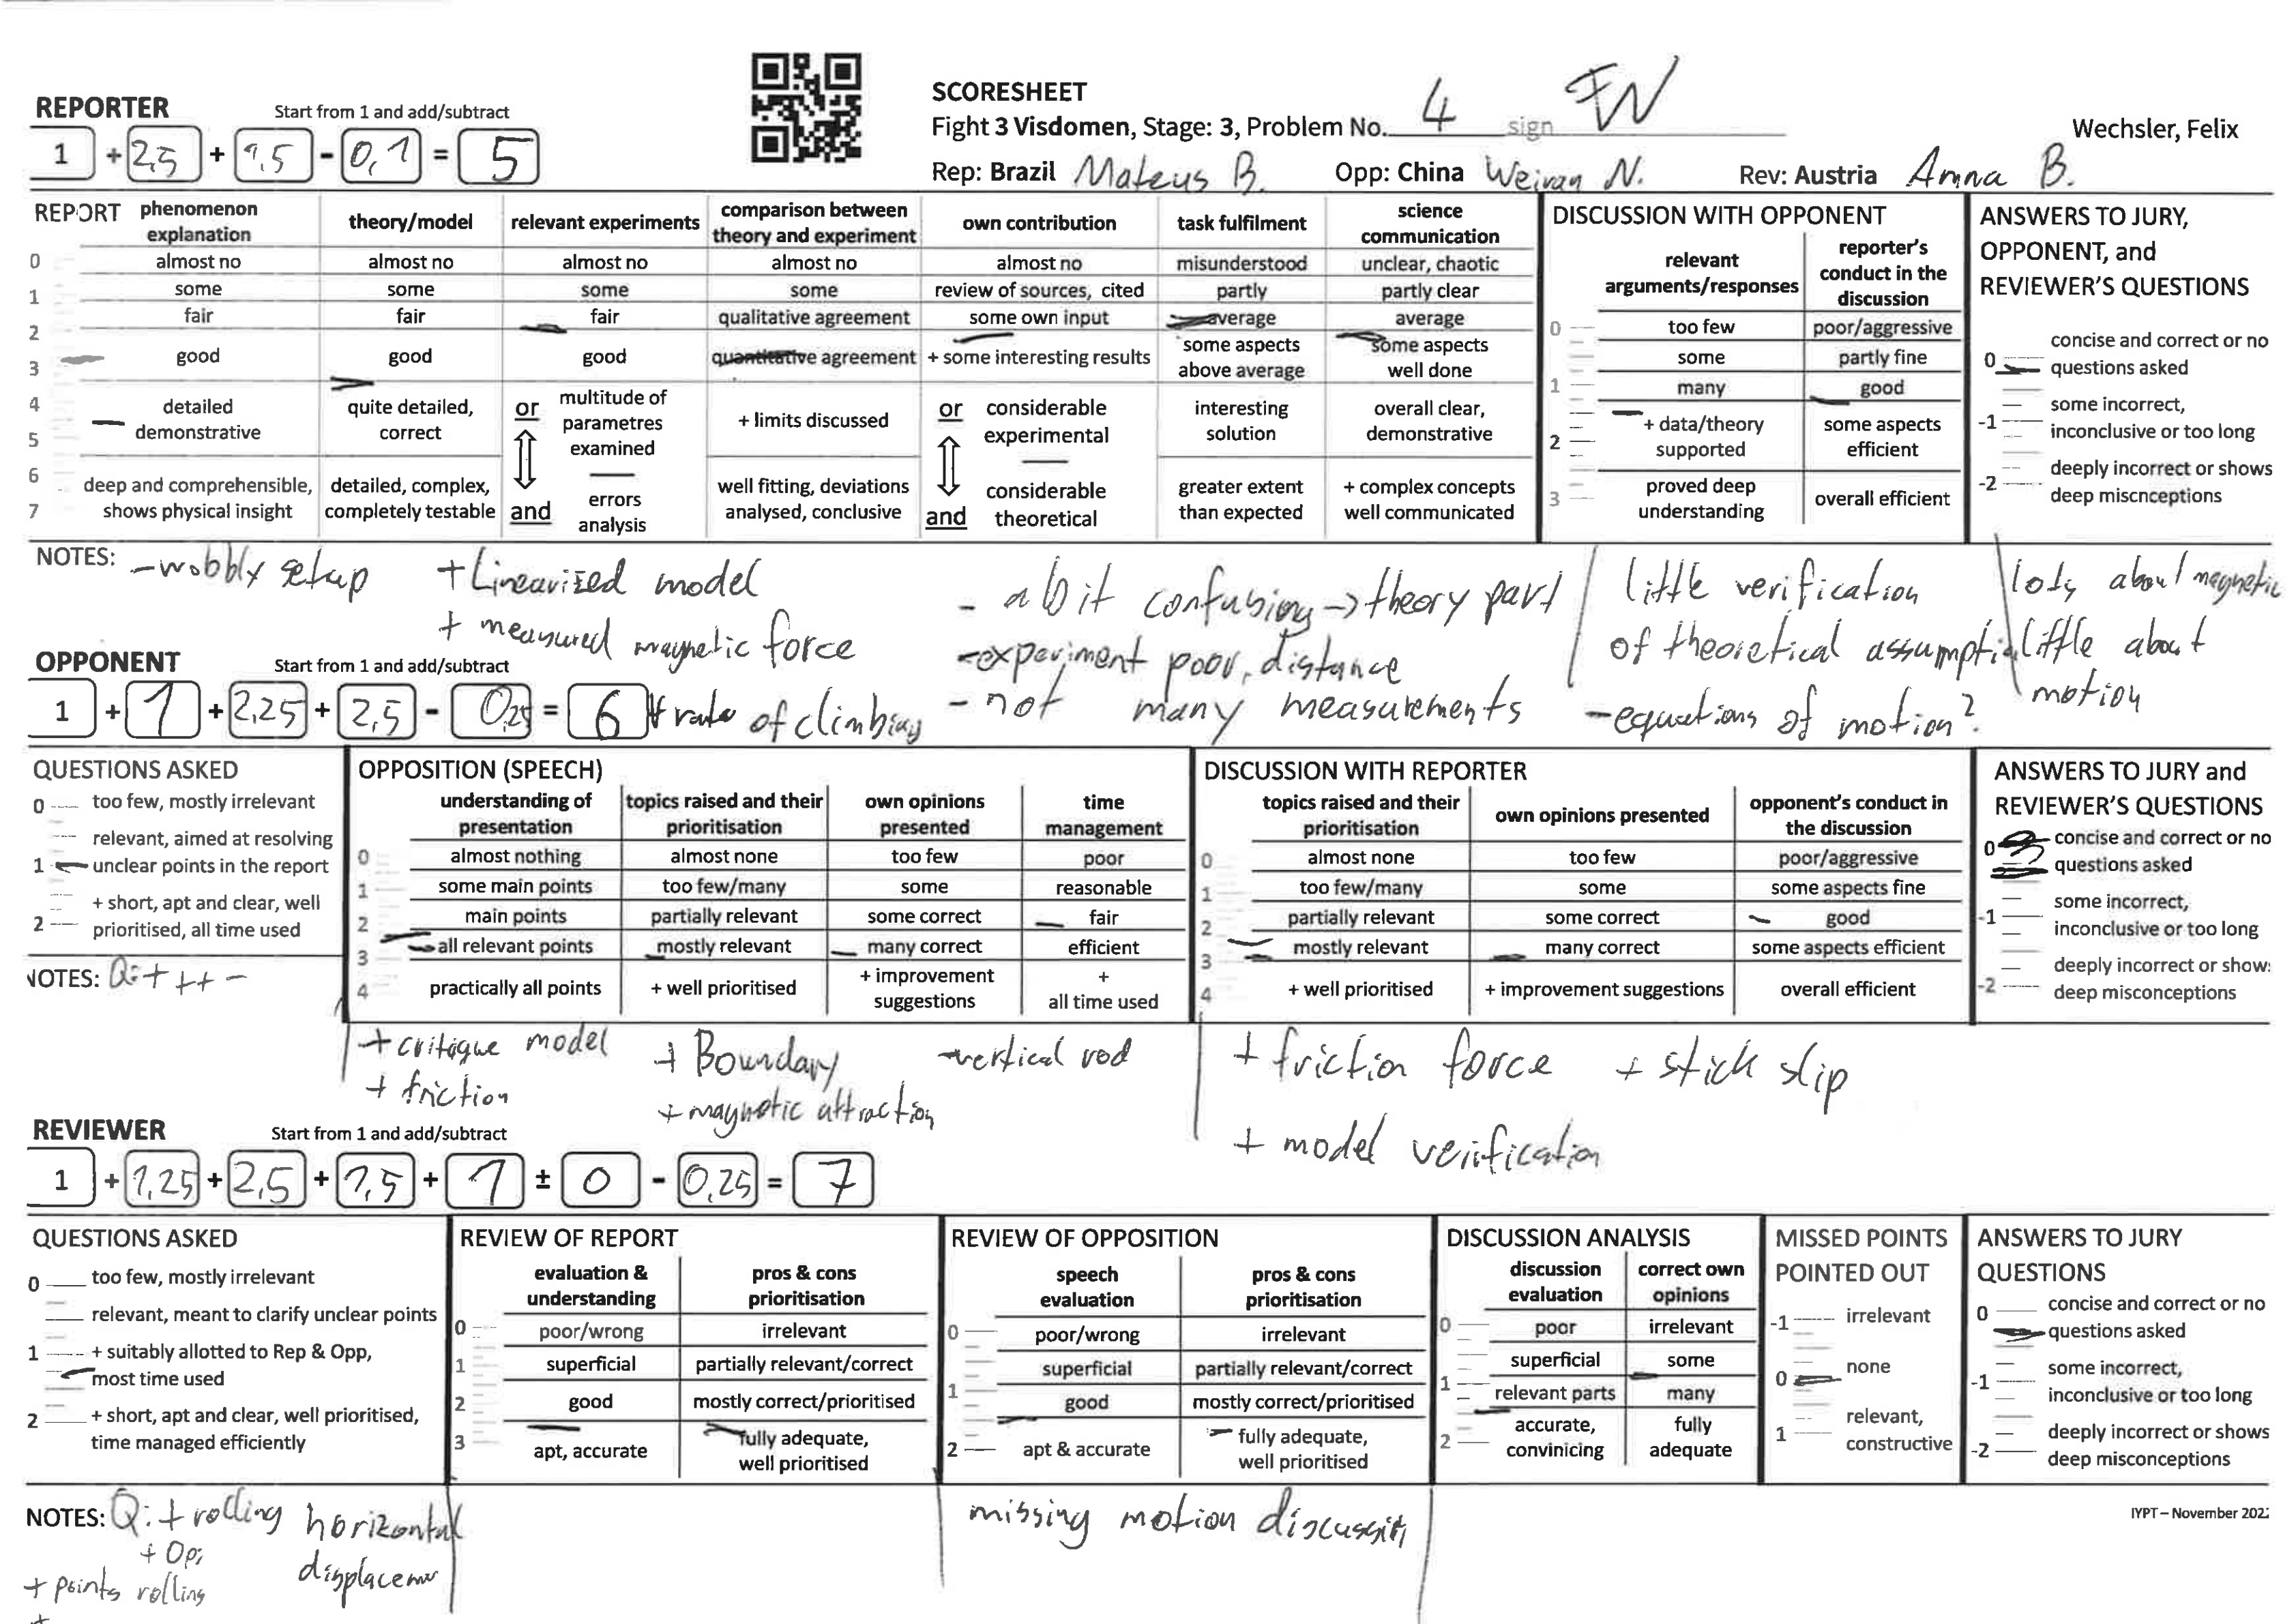 SCORESHEET
Fight 3 Visdomen, Stage: 3, Problem No. 4 sign FW
Wechsler, Felix
Rep: Brazil Mateus B. Opp: China Weiran N. Rev: Austria Anna B.
REPORTER Start from 1 and add/subtract
1 + 2,5 + 1,5 - 0,1 = 5
REPORT
phenomenon explanation
theory/model
relevant experiments
comparison between theory and experiment
own contribution
task fulfilment
science communication
0 almost no almost no almost no almost no almost no misunderstood unclear, chaotic
1 some some some some review of sources, cited partly partly clear
2 fair fair fair qualitative agreement some own input average average
3 good good good quantitative agreement + some interesting results some aspects above average some aspects well done
4 5 detailed demonstrative quite detailed, correct or multitude of parametres examined + limits discussed or considerable experimental interesting solution overall clear, demonstrative
6 7 deep and comprehensible, shows physical insight detailed, complex, completely testable and errors analysis well fitting, deviations analysed, conclusive and considerable theoretical greater extent than expected + complex concepts well communicated
DISCUSSION WITH OPPONENT
relevant arguments/responses
reporter's conduct in the discussion
0 too few poor/aggressive
some partly fine
1 many good
2 + data/theory supported some aspects efficient
3 proved deep understanding overall efficient
ANSWERS TO JURY, OPPONENT, and REVIEWER'S QUESTIONS
0 concise and correct or no questions asked
-1 some incorrect, inconclusive or too long
-2 deeply incorrect or shows deep miscnceptions
NOTES: - wobbly setup
+ Linearized model
+ measured magnetic force
+ rate of climbing
- a bit confusing -> theory part
- experiment poor, distance
- not many measurements
little verification
of theoretical
- equations of motion?
lots about magnetic
little about
motion
OPPONENT Start from 1 and add/subtract
1 + 1 + 2,25 + 2,5 - 0,25 = 6
QUESTIONS ASKED
0 too few, mostly irrelevant
1 relevant, aimed at resolving unclear points in the report
2 + short, apt and clear, well prioritised, all time used
NOTES: Q: + ++ -
OPPOSITION (SPEECH)
understanding of presentation
topics raised and their prioritisation
own opinions presented
time management
0 almost nothing almost none too few poor
1 some main points too few/many some reasonable
2 main points partially relevant some correct fair
3 all relevant points mostly relevant many correct efficient
4 practically all points + well prioritised + improvement suggestions + all time used
DISCUSSION WITH REPORTER
topics raised and their prioritisation
own opinions presented
opponent's conduct in the discussion
0 almost none too few poor/aggressive
1 too few/many some some aspects fine
2 partially relevant some correct good
3 mostly relevant many correct some aspects efficient
4 + well prioritised + improvement suggestions overall efficient
ANSWERS TO JURY and REVIEWER'S QUESTIONS
0 concise and correct or no questions asked
-1 some incorrect, inconclusive or too long
-2 deeply incorrect or show: deep misconceptions
+ critique model
+ friction
+ Boundary
+ magnetic attraction
- vertical rod
+ friction force + stick slip
+ model verification
REVIEWER Start from 1 and add/subtract
1 + 1,25 + 2,5 + 1,5 + 1 ± 0 - 0,25 = 7
QUESTIONS ASKED
0 too few, mostly irrelevant
relevant, meant to clarify unclear points
1 + suitably allotted to Rep & Opp, most time used
2 + short, apt and clear, well prioritised, time managed efficiently
REVIEW OF REPORT
evaluation & understanding
pros & cons prioritisation
0 poor/wrong irrelevant
1 superficial partially relevant/correct
2 good mostly correct/prioritised
3 apt, accurate fully adequate, well prioritised
REVIEW OF OPPOSITION
speech evaluation
pros & cons prioritisation
0 poor/wrong irrelevant
superficial partially relevant/correct
1 good mostly correct/prioritised
2 apt & accurate fully adequate, well prioritised
DISCUSSION ANALYSIS
discussion evaluation
correct own opinions
0 poor irrelevant
superficial some
1 relevant parts many
2 accurate, convinicing fully adequate
MISSED POINTS POINTED OUT
-1 irrelevant
0 none
1 relevant, constructive
ANSWERS TO JURY QUESTIONS
0 concise and correct or no questions asked
-1 some incorrect, inconclusive or too long
-2 deeply incorrect or shows deep misconceptions
NOTES: Q: + rolling horizontal
+ Op:
+ points rolling
missing motion
IYPT – November 202